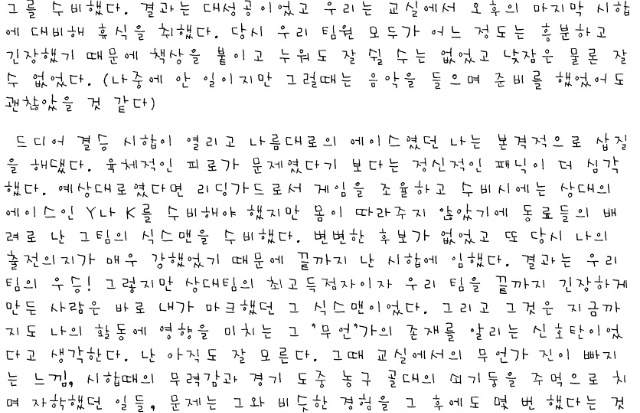 그를 수비했다. 결과는 대성공이었고 우리는 교실에서 오후의 마지막 시합
에 대비해 휴식을 취했다. 당시 우리 팀원 모두가 어느 정도는 흥분하고
긴장했기 때문에 책상을 붙이고 누워도 잘 쉴 수는 없었고 낮잠은 물론 잘
수 없었다. (나중에 안 일이지만 그럴때는 음악을 들으며 준비를 했었어도
괜찮았을 것 같다)
드디어 결승 시합이 열리고 나름대로의 에이스였던 나는 본격적으로 삽질
을 해댔다. 육체적인 피로가 문제였다기 보다는 정신적인 패닉이 더 심각
했다. 예상대로였다면 리딩가드로서 게임을 조율하고 수비시에는 상대의
에이스인 Y나 K를 수비해야 했지만 몸이 따라주지 않았기에 동료들의 배
려로 난 그팀의 식스맨을 수비했다. 변변한 후보가 없었고 또 당시 나의
출전의지가 매우 강했었기 때문에 끝까지 난 시합에 임했다. 결과는 우리
팀의 우승! 그렇지만 상대팀의 최고득점자이자 우리 팀을 끝까지 긴장하게
만든 사람은 바로 내가 마크했던 그 식스맨이었다. 그리고 그것은 지금까
지도 나의 활동에 영향을 미치는 그 "무언"가의 존재를 알리는 신호탄이었
다고 생각한다. 난 아직도 잘 모른다. 그때 교실에서의 무언가 진이 빠지
는 느낌, 시합때의 무력감과 경기 도중 농구 골대의 쇠기둥을 주먹으로 치
며 자학했던 일들, 문제는 그와 비슷한 경험을 그 후에도 몇 번 했다는 것